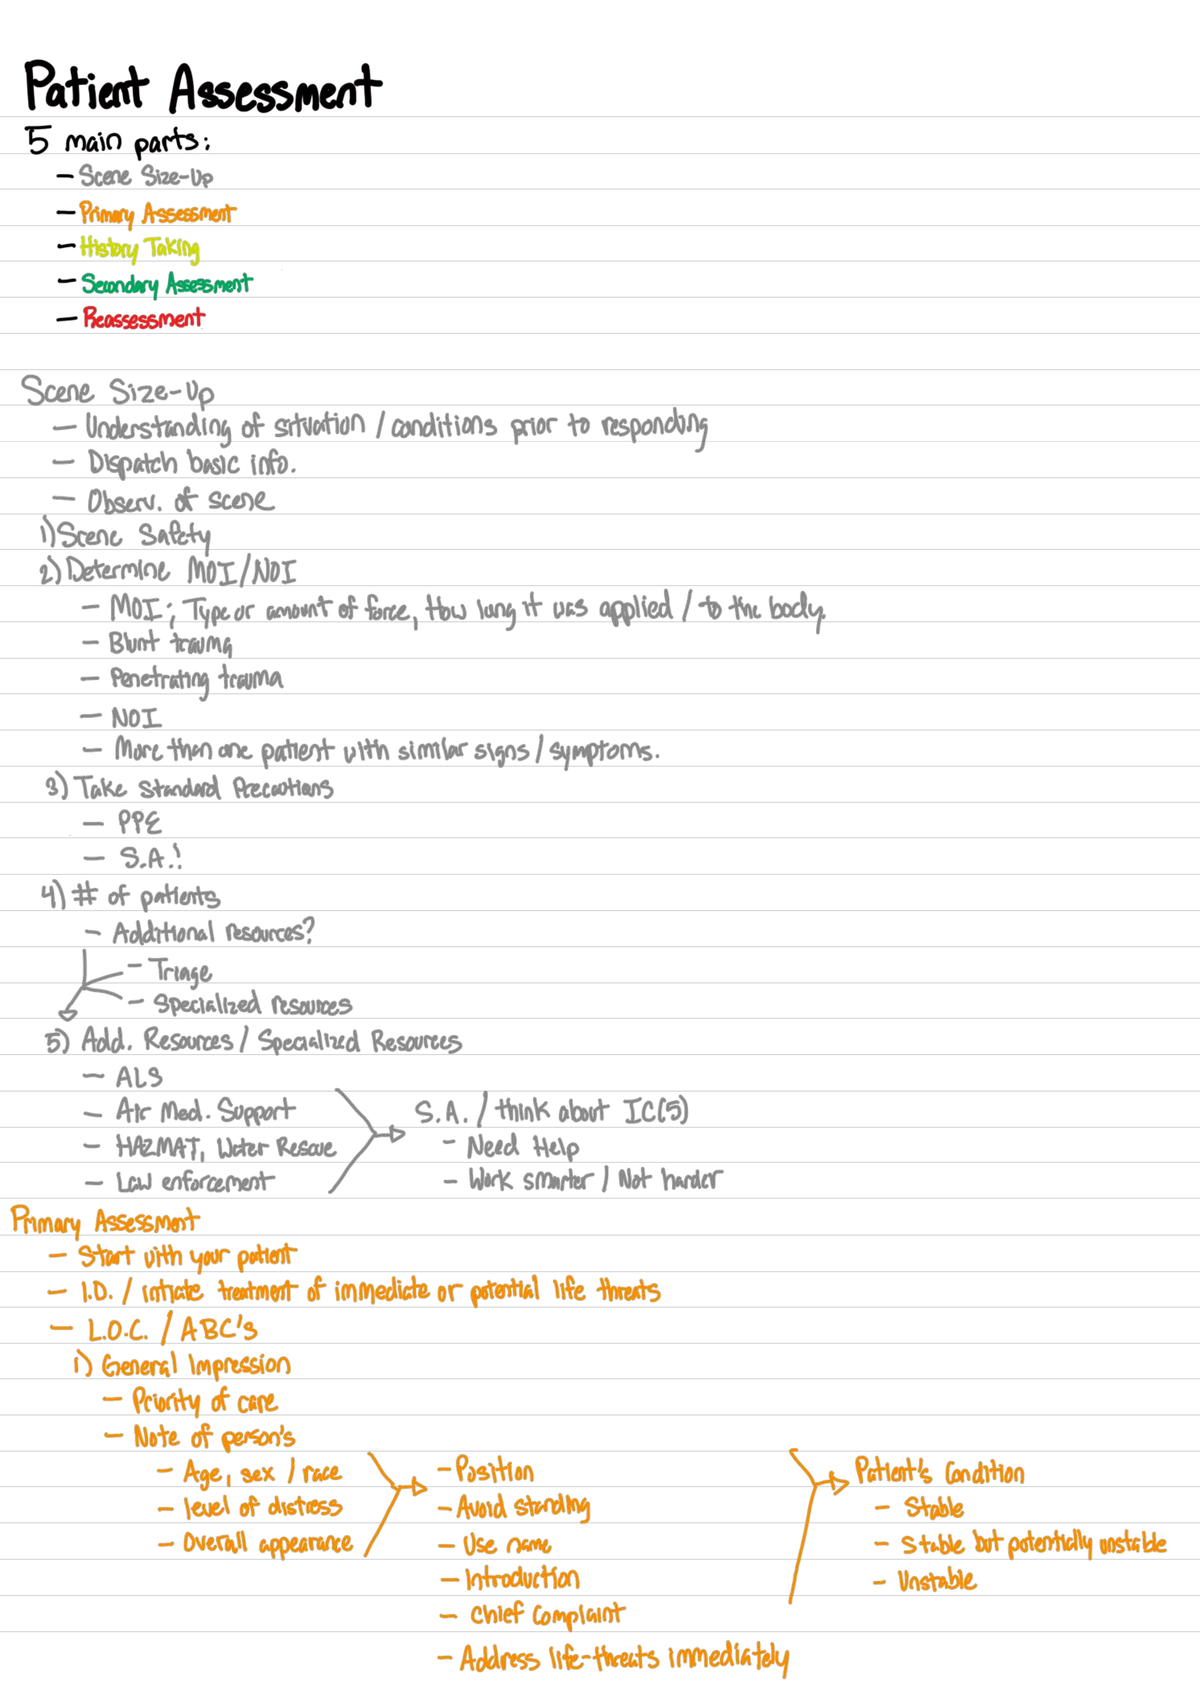 Patient Assessment
5 main parts:
- Scene Size-Up
- Primary Assessment
- History Taking
- Secondary Assessment
- Reassessment
Scene Size-Up
- Understanding of situation / conditions prior to responding
- Dispatch basic info.
- Observ. of scene
1) Scene Safety
2) Determine MOI/NOI
- MOI; Type or amount of force, How long it was applied / to the body.
- Blunt trauma
- Penetrating trauma
- NOI
- More than one patient with similar signs / symptoms.
3) Take Standard Precautions
- PPE
- S.A.!
4) # of patients
- Additional resources?
- Triage
- Specialized resources
5) Add. Resources / Specialized Resources
- ALS
- Air Med. Support
- HAZMAT, Water Rescue
- Law enforcement
S.A. / think about IC(5)
- Need Help
- Work smarter / Not harder
Primary Assessment
- Start with your patient
- I.D. / intiate treatment of immediate or potential life threats
- L.O.C. / ABC's
1) General Impression
- Priority of care
- Note of person's
- Age, sex / race
- level of distress
- Overall appearance
- Position
- Avoid standing
- Use name
- Introduction
- Chief Complaint
- Address life-threats immediately
Patient's Condition
- Stable
- Stable but potentially unstable
- Unstable